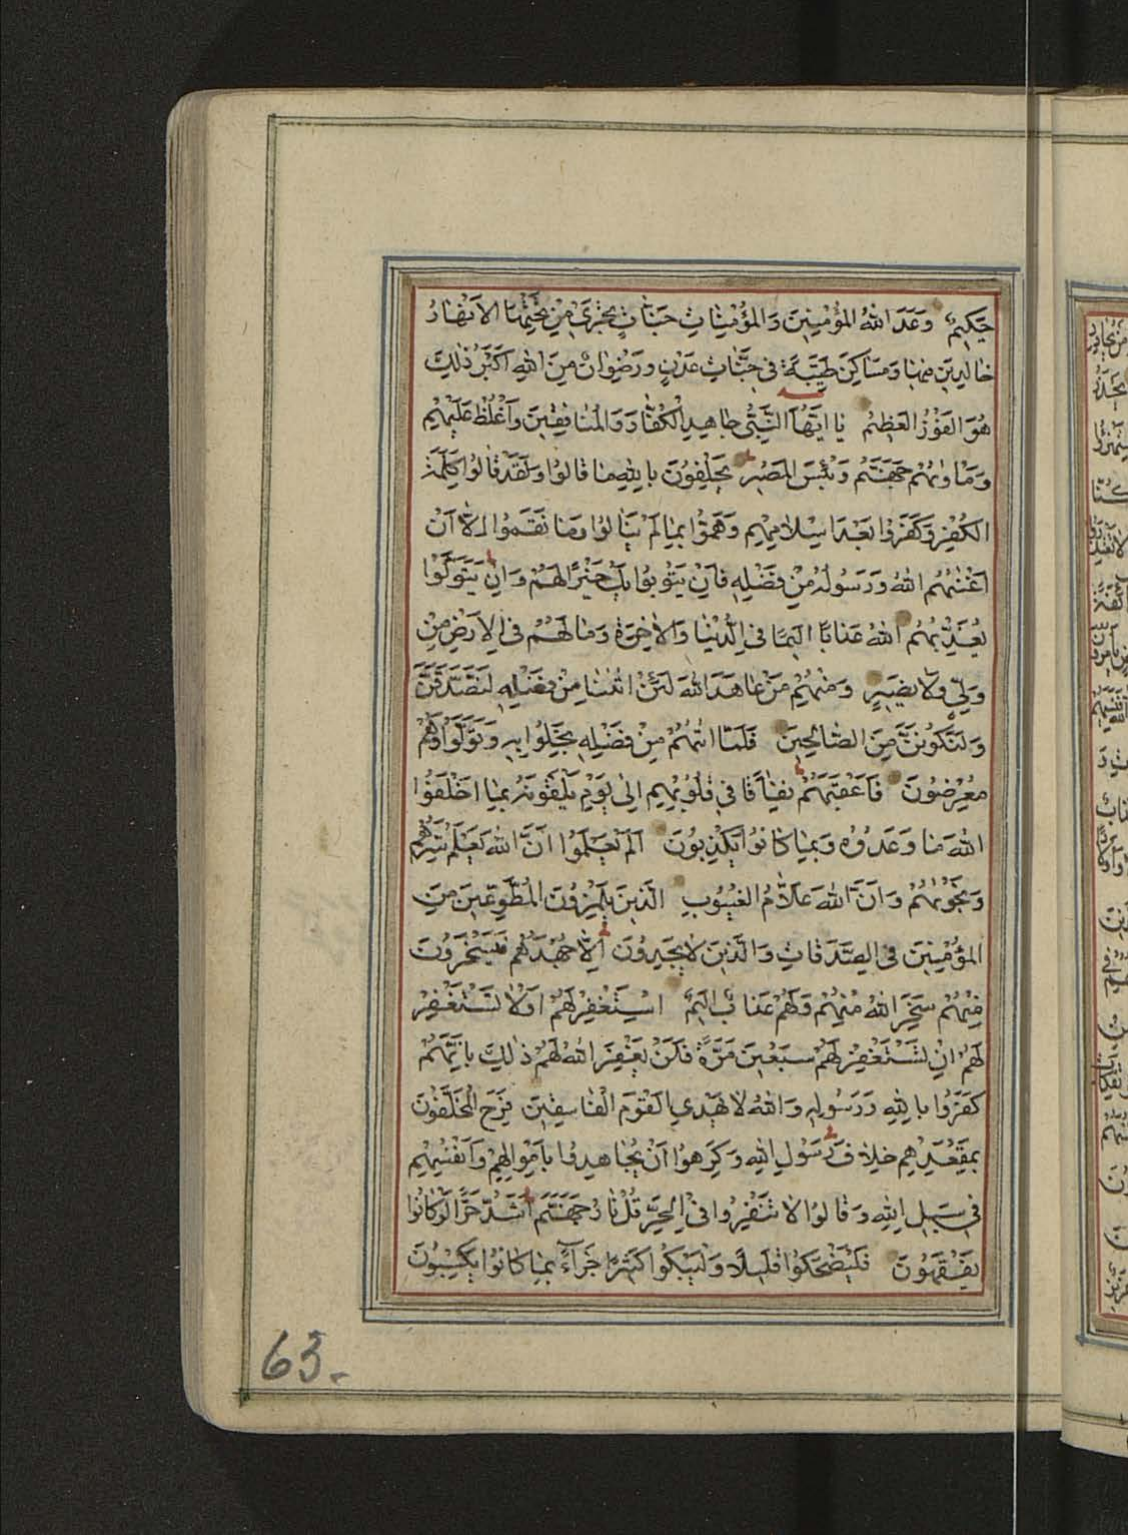 حَكِيمٌ وَعَدَ اللهُ المُؤْمِنِينَ وَالمُؤْمِنَاتِ جَنَّاتٍ تَجْرِي مِنْ تَحْتِهَا الاَنْهَارُ
خَالِدِينَ فِيهَا وَمَسَاكِنَ طَيِّبَةً فِي جَنَّاتِ عَدْنٍ وَرِضْوَانٌ مِنَ اللهِ اَكْبَرُ ذٰلِكَ
هُوَ الفَوْزُ العَظِيمُ يَا اَيُّهَا النَّبِيُّ جَاهِدِ الْكُفَّارَ وَالْمُنَافِقِينَ وَاغْلُظْ عَلَيْهِمْ
وَمَاْوٰيهُمْ جَهَنَّمُ وَبِئْسَ المَصِيرُ يَحْلِفُونَ بِاللهِ مَا قَالُوا وَلَقَدْ قَالُوا كَلِمَةَ
الكُفْرِ وَكَفَرُوا بَعْدَ اِسْلَامِهِمْ وَهَمُّوا بِمَا لَمْ يَنَالُوا وَمَا نَقَمُوا اِلَّا اَنْ
اَغْنٰيهُمُ اللهُ وَرَسُولُهُ مِنْ فَضْلِهِ فَاِنْ يَتُوبُوا يَكُ خَيْرًا لَهُمْ وَاِنْ يَتَوَلَّوْا
يُعَذِّبْهُمُ اللهُ عَذَابًا اَلِيمًا فِي الدُّنْيَا وَالْاٰخِرَةِ وَمَا لَهُمْ فِي الاَرْضِ مِنْ
وَلِيٍّ وَلَا نَصِيرٍ وَمِنْهُمْ مَنْ عَاهَدَ اللهَ لَئِنْ اٰتٰنَا مِنْ فَضْلِهِ لَنَصَّدَّقَنَّ
وَلَنَكُونَنَّ مِنَ الصَّالِحِينَ فَلَمَّا اٰتٰهُمْ مِنْ فَضْلِهِ بَخِلُوا بِهِ وَتَوَلَّوْا وَهُمْ
مُعْرِضُونَ فَاَعْقَبَهُمْ نِفَاقًا فِي قُلُوبِهِمْ اِلٰى يَوْمِ يَلْقَوْنَهُ بِمَا اَخْلَفُوا
اللهَ مَا وَعَدُوهُ وَبِمَا كَانُوا يَكْذِبُونَ اَلَمْ يَعْلَمُوا اَنَّ اللهَ يَعْلَمُ سِرَّهُمْ
وَنَجْوٰيهُمْ وَاَنَّ اللهَ عَلَّامُ الغُيُوبِ الَّذِينَ يَلْمِزُونَ الْمُطَّوِّعِينَ مِنَ
المُؤْمِنِينَ فِي الصَّدَقَاتِ وَالَّذِينَ لَا يَجِدُونَ اِلَّا جُهْدَهُمْ فَيَسْخَرُونَ
مِنْهُمْ سَخِرَ اللهُ مِنْهُمْ وَلَهُمْ عَذَابٌ اَلِيمٌ اِسْتَغْفِرْ لَهُمْ اَوْ لَا تَسْتَغْفِرْ
لَهُمْ اِنْ تَسْتَغْفِرْ لَهُمْ سَبْعِينَ مَرَّةً فَلَنْ يَغْفِرَ اللهُ لَهُمْ ذٰلِكَ بِاَنَّهُمْ
كَفَرُوا بِاللهِ وَرَسُولِهِ وَاللهُ لَا يَهْدِي القَوْمَ الْفَاسِقِينَ فَرِحَ الْمُخَلَّفُونَ
بِمَقْعَدِهِمْ خِلَافَ رَسُولِ اللهِ وَكَرِهُوا اَنْ يُجَاهِدُوا بِاَمْوَالِهِمْ وَاَنْفُسِهِمْ
فِي سَبِيلِ اللهِ وَقَالُوا لَا تَنْفِرُوا فِي الْحَرِّ قُلْ نَارُ جَهَنَّمَ اَشَدُّ حَرًّا لَوْ كَانُوا
يَفْقَهُونَ فَلْيَضْحَكُوا قَلِيلًا وَلْيَبْكُوا كَثِيرًا جَزَاءً بِمَا كَانُوا يَكْسِبُونَ
63.